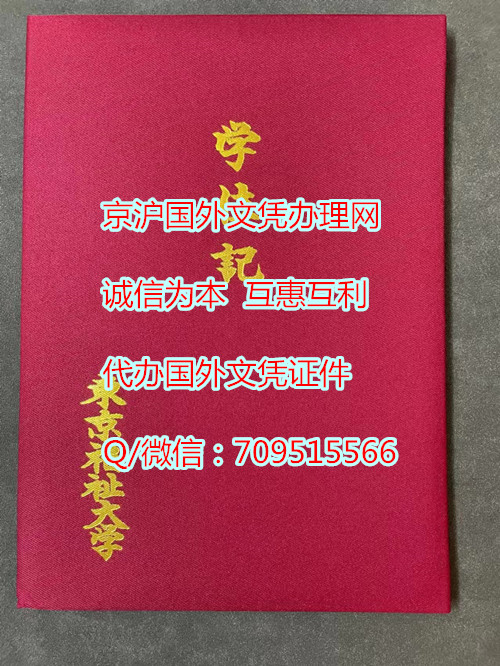 学位記
京沪国外文凭办理网
诚信为本 互惠互利
代办国外文凭证件
Q/微信：709515566
東京福祉大学